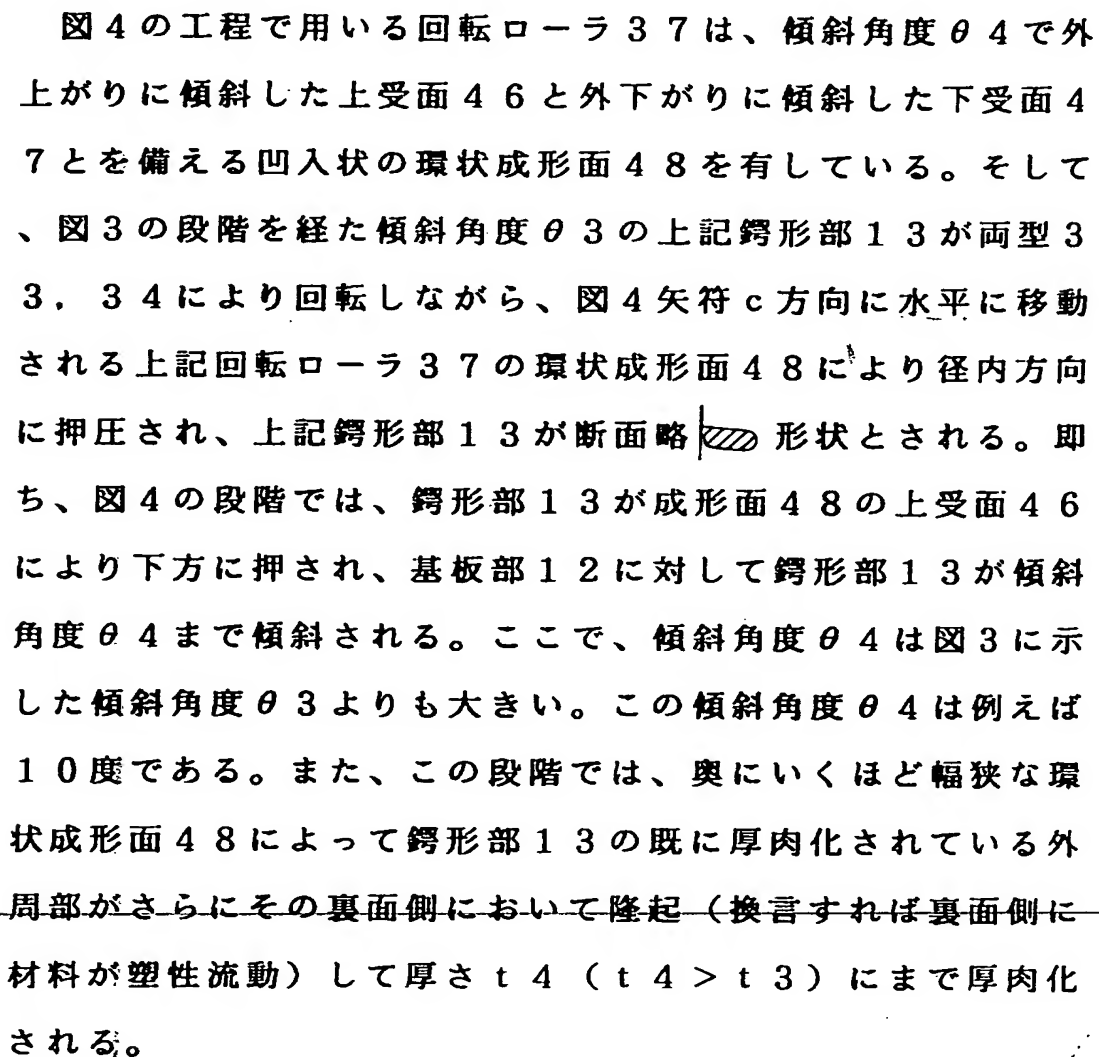 図4の工程で用いる回転ローラ37は、傾斜角度θ4で外
上がりに傾斜した上受面46と外下がりに傾斜した下受面4
7とを備える凹入状の環状成形面48を有している。そして
、図3の段階を経た傾斜角度θ3の上記鍔形部13が両型3
3,34により回転しながら、図4矢符c方向に水平に移動
される上記回転ローラ37の環状成形面48により径内方向
に押圧され、上記鍔形部13が断面略 形状とされる。即
ち、図4の段階では、鍔形部13が成形面48の上受面46
により下方に押され、基板部12に対して鍔形部13が傾斜
角度θ4まで傾斜される。ここで、傾斜角度θ4は図3に示
した傾斜角度θ3よりも大きい。この傾斜角度θ4は例えば
10度である。また、この段階では、奥にいくほど幅狭な環
状成形面48によって鍔形部13の既に厚肉化されている外
周部がさらにその裏面側において隆起(換言すれば裏面側に
材料が塑性流動)して厚さt4(t4>t3)にまで厚肉化
される。